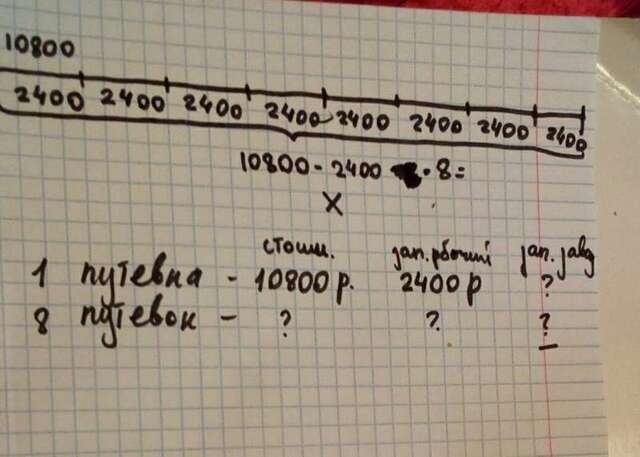 10800
2400 2400 2400 2400 2400 2400 2400 2400
10800 - 2400 · 8 =
X
стоим. зап. рбочий зап. завд
1 путевка - 10800 р. 2400 р ?
8 путевок - ? ? ?